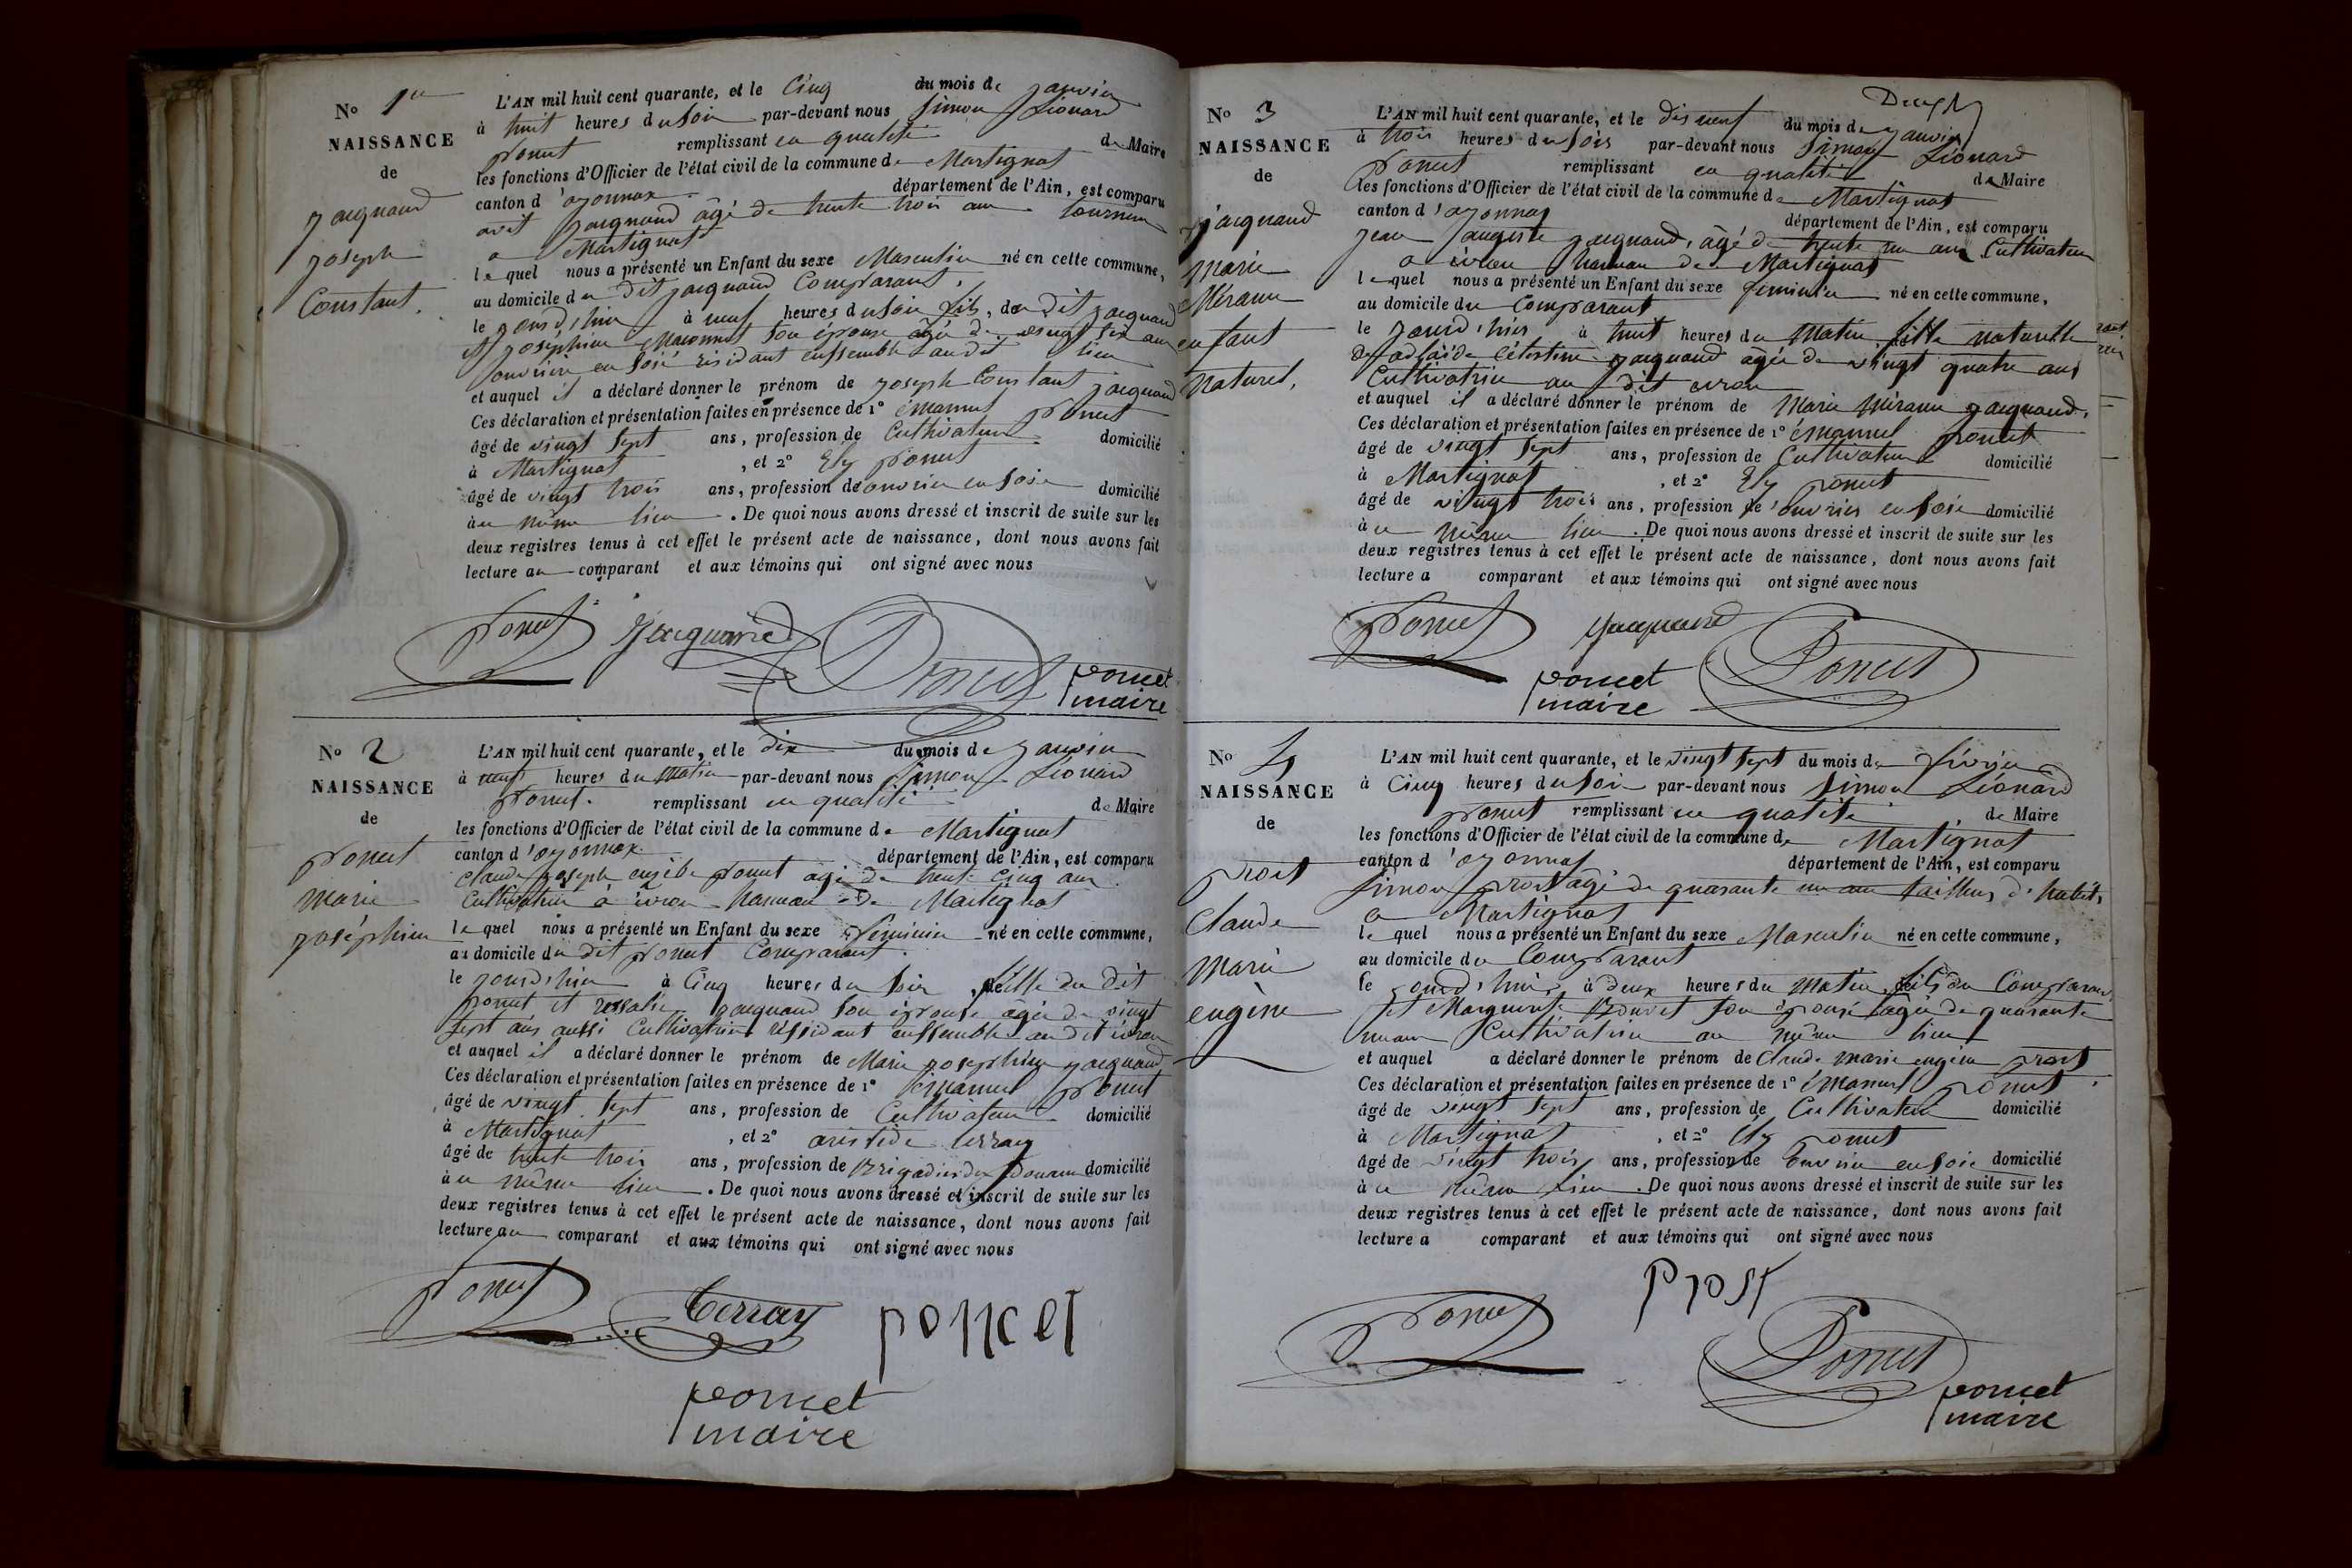 No 1er
NAISSANCE
de
Jacquand
Joseph
Constant.
L'AN mil huit cent quarante, et le Cinq du mois de Janvier
à huit heures du Soir par-devant nous Simon Léonard
Poncet remplissant en qualité de Maire
les fonctions d'Officier de l'état civil de la commune de Martignat
canton d'oyonnax département de l'Ain, est comparu
Jacquand âgé de trente trois ans tourneur
a Martignat
lequel nous a présenté un Enfant du sexe Masculin né en cette commune,
au domicile du dit Jacquand Comparant,
le Jourd'hui à neuf heures du Soir fils, du dit Jacquand
et Josephine son épouse âgée de vingt six ans
ouvrière en Soie résidant enssemble au dit lieu
et auquel il a déclaré donner le prénom de Joseph Constant Jacquand
Ces déclaration et présentation faites en présence de 1° émanuel Poncet
âgé de vingt Sept ans, profession de Cultivateur domicilié
à Martignat, et 2° Ely Poncet
âgé de vingt trois ans, profession de ouvrier en Soie domicilié
au même lieu. De quoi nous avons dressé et inscrit de suite sur les
deux registres tenus à cet effet le présent acte de naissance, dont nous avons fait
lecture au comparant et aux témoins qui ont signé avec nous
Poncet Jacquand Poncet poncet
maire
No 2
NAISSANCE
de
Poncet
Marie
Joséphine
L'AN mil huit cent quarante, et le dix du mois de Janvier
à neuf heures du Matin par-devant nous Simon Léonard
Poncet. remplissant en qualité de Maire
les fonctions d'Officier de l'état civil de la commune de Martignat
canton d'oyonnax département de l'Ain, est comparu
Claude Joseph eusèbe Poncet âgé de trente Cinq ans
Cultivateur à évron hameau de Martignat
lequel nous a présenté un Enfant du sexe féminin né en cette commune,
au domicile du dit Poncet Comparant.
le Jourd'hui à Cinq heures du Soir, fille du dit
Poncet et rosalie Jacquand son épouse âgée de vingt
Sept ans aussi Cultivatrice résidant enssemble au dit évron
et auquel il a déclaré donner le prénom de Marie Josephine Jacquand
Ces déclaration et présentation faites en présence de 1° émanuel Poncet
âgé de vingt Sept ans, profession de Cultivateur domicilié
à Martignat, et 2° aristide terray
âgé de trente trois ans, profession de Brigadier des Douanes domicilié
au même lieu. De quoi nous avons dressé et inscrit de suite sur les
deux registres tenus à cet effet le présent acte de naissance, dont nous avons fait
lecture au comparant et aux témoins qui ont signé avec nous
Poncet Terray poncet
poncet
maire
No 3
NAISSANCE
de
Jacquand
Marie
Mérame
enfant
naturel,
L'AN mil huit cent quarante, et le dis neuf du mois de Janvier
à trois heures du Soir par-devant nous Simon Léonard
Poncet remplissant en qualité de Maire
les fonctions d'Officier de l'état civil de la commune de Martignat
canton d'oyonnax département de l'Ain, est comparu
Jean auguste Jacquand, âgé de trente un ans Cultivateur
a évron hameau de Martignat
lequel nous a présenté un Enfant du sexe féminin né en cette commune,
au domicile du Comparant
le Jourd'hui à huit heures du Matin fille naturelle
de adlaïde Célestine Jacquand âgée de vingt quatre ans
Cultivatrice au dit evron
et auquel il a déclaré donner le prénom de Marie Mérame Jacquand.
Ces déclaration et présentation faites en présence de 1° émanuel Poncet
âgé de vingt Sept ans, profession de Cultivateur domicilié
à Martignat, et 2° Ely Poncet
âgé de vingt trois ans, profession de ouvrier en Soie domicilié
au même lieu. De quoi nous avons dressé et inscrit de suite sur les
deux registres tenus à cet effet le présent acte de naissance, dont nous avons fait
lecture a comparant et aux témoins qui ont signé avec nous
Poncet Jacquand
poncet Poncet
maire
No 4
NAISSANCE
de
Prost
Claude
Marie
eugène
L'AN mil huit cent quarante, et le vingt Sept du mois de février
à Cinq heures du Soir par-devant nous Simon Léonard
Poncet remplissant en qualité de Maire
les fonctions d'Officier de l'état civil de la commune de Martignat
canton d'oyonnax département de l'Ain, est comparu
Simon Prost âgé de quarante un ans tailleur d'habits
a Martignat
lequel nous a présenté un Enfant du sexe Masculin né en cette commune,
au domicile du Comparant
le Jourd'hui, à deux heures du Matin, fils du Comparant
et Marguerite son épouse âgée de quarante
un ans Cultivatrice au même lieu
et auquel a déclaré donner le prénom de Claude Marie eugène Prost
Ces déclaration et présentation faites en présence de 1° émanuel Poncet
âgé de vingt Sept ans, profession de Cultivateur domicilié
à Martignat, et 2° Ely Poncet
âgé de vingt trois ans, profession de ouvrier en Soie domicilié
au même lieu. De quoi nous avons dressé et inscrit de suite sur les
deux registres tenus à cet effet le présent acte de naissance, dont nous avons fait
lecture a comparant et aux témoins qui ont signé avec nous
Prost
Poncet Poncet
poncet
maire